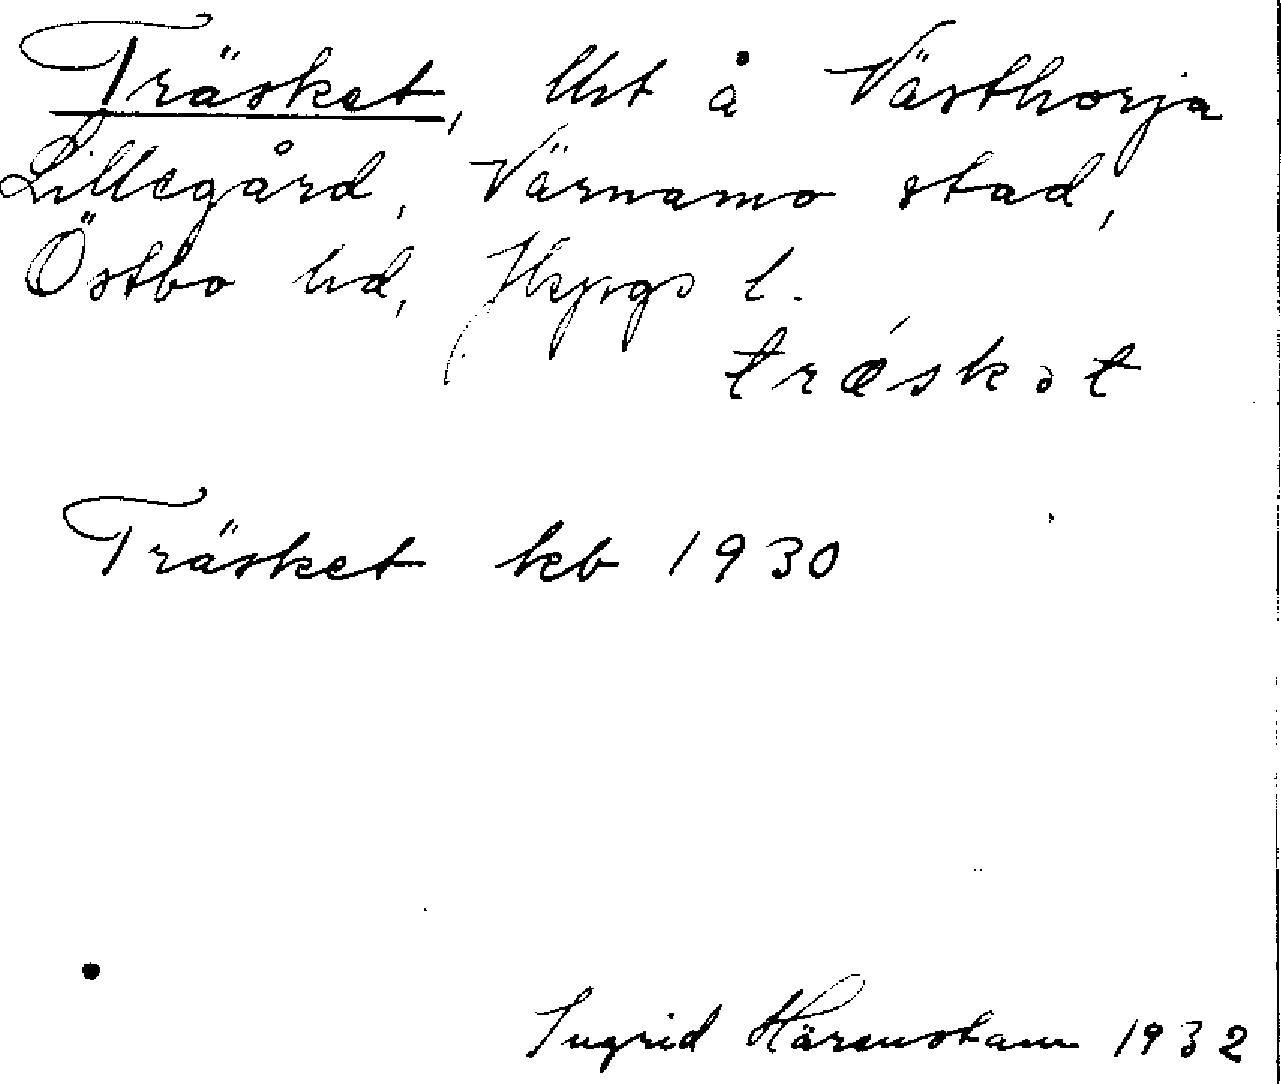 Träsket, lht å Västhorja
Lillegård, Värnamo stad,
Östbo hd, Jkpgs l.
træ´skət
Träsket kb 1930
Ingrid Härenstam 1932